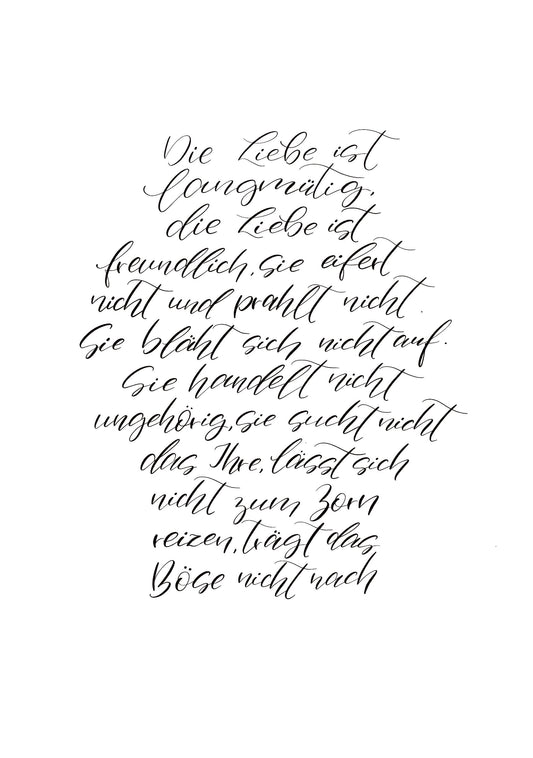 Die Liebe ist
langmütig,
die Liebe ist
freundlich, sie eifert
nicht und prahlt nicht.
Sie bläht sich nicht auf.
Sie handelt nicht
ungehörig, sie sucht nicht
das Ihre, lässt sich
nicht zum Zorn
reizen, trägt das
Böse nicht nach